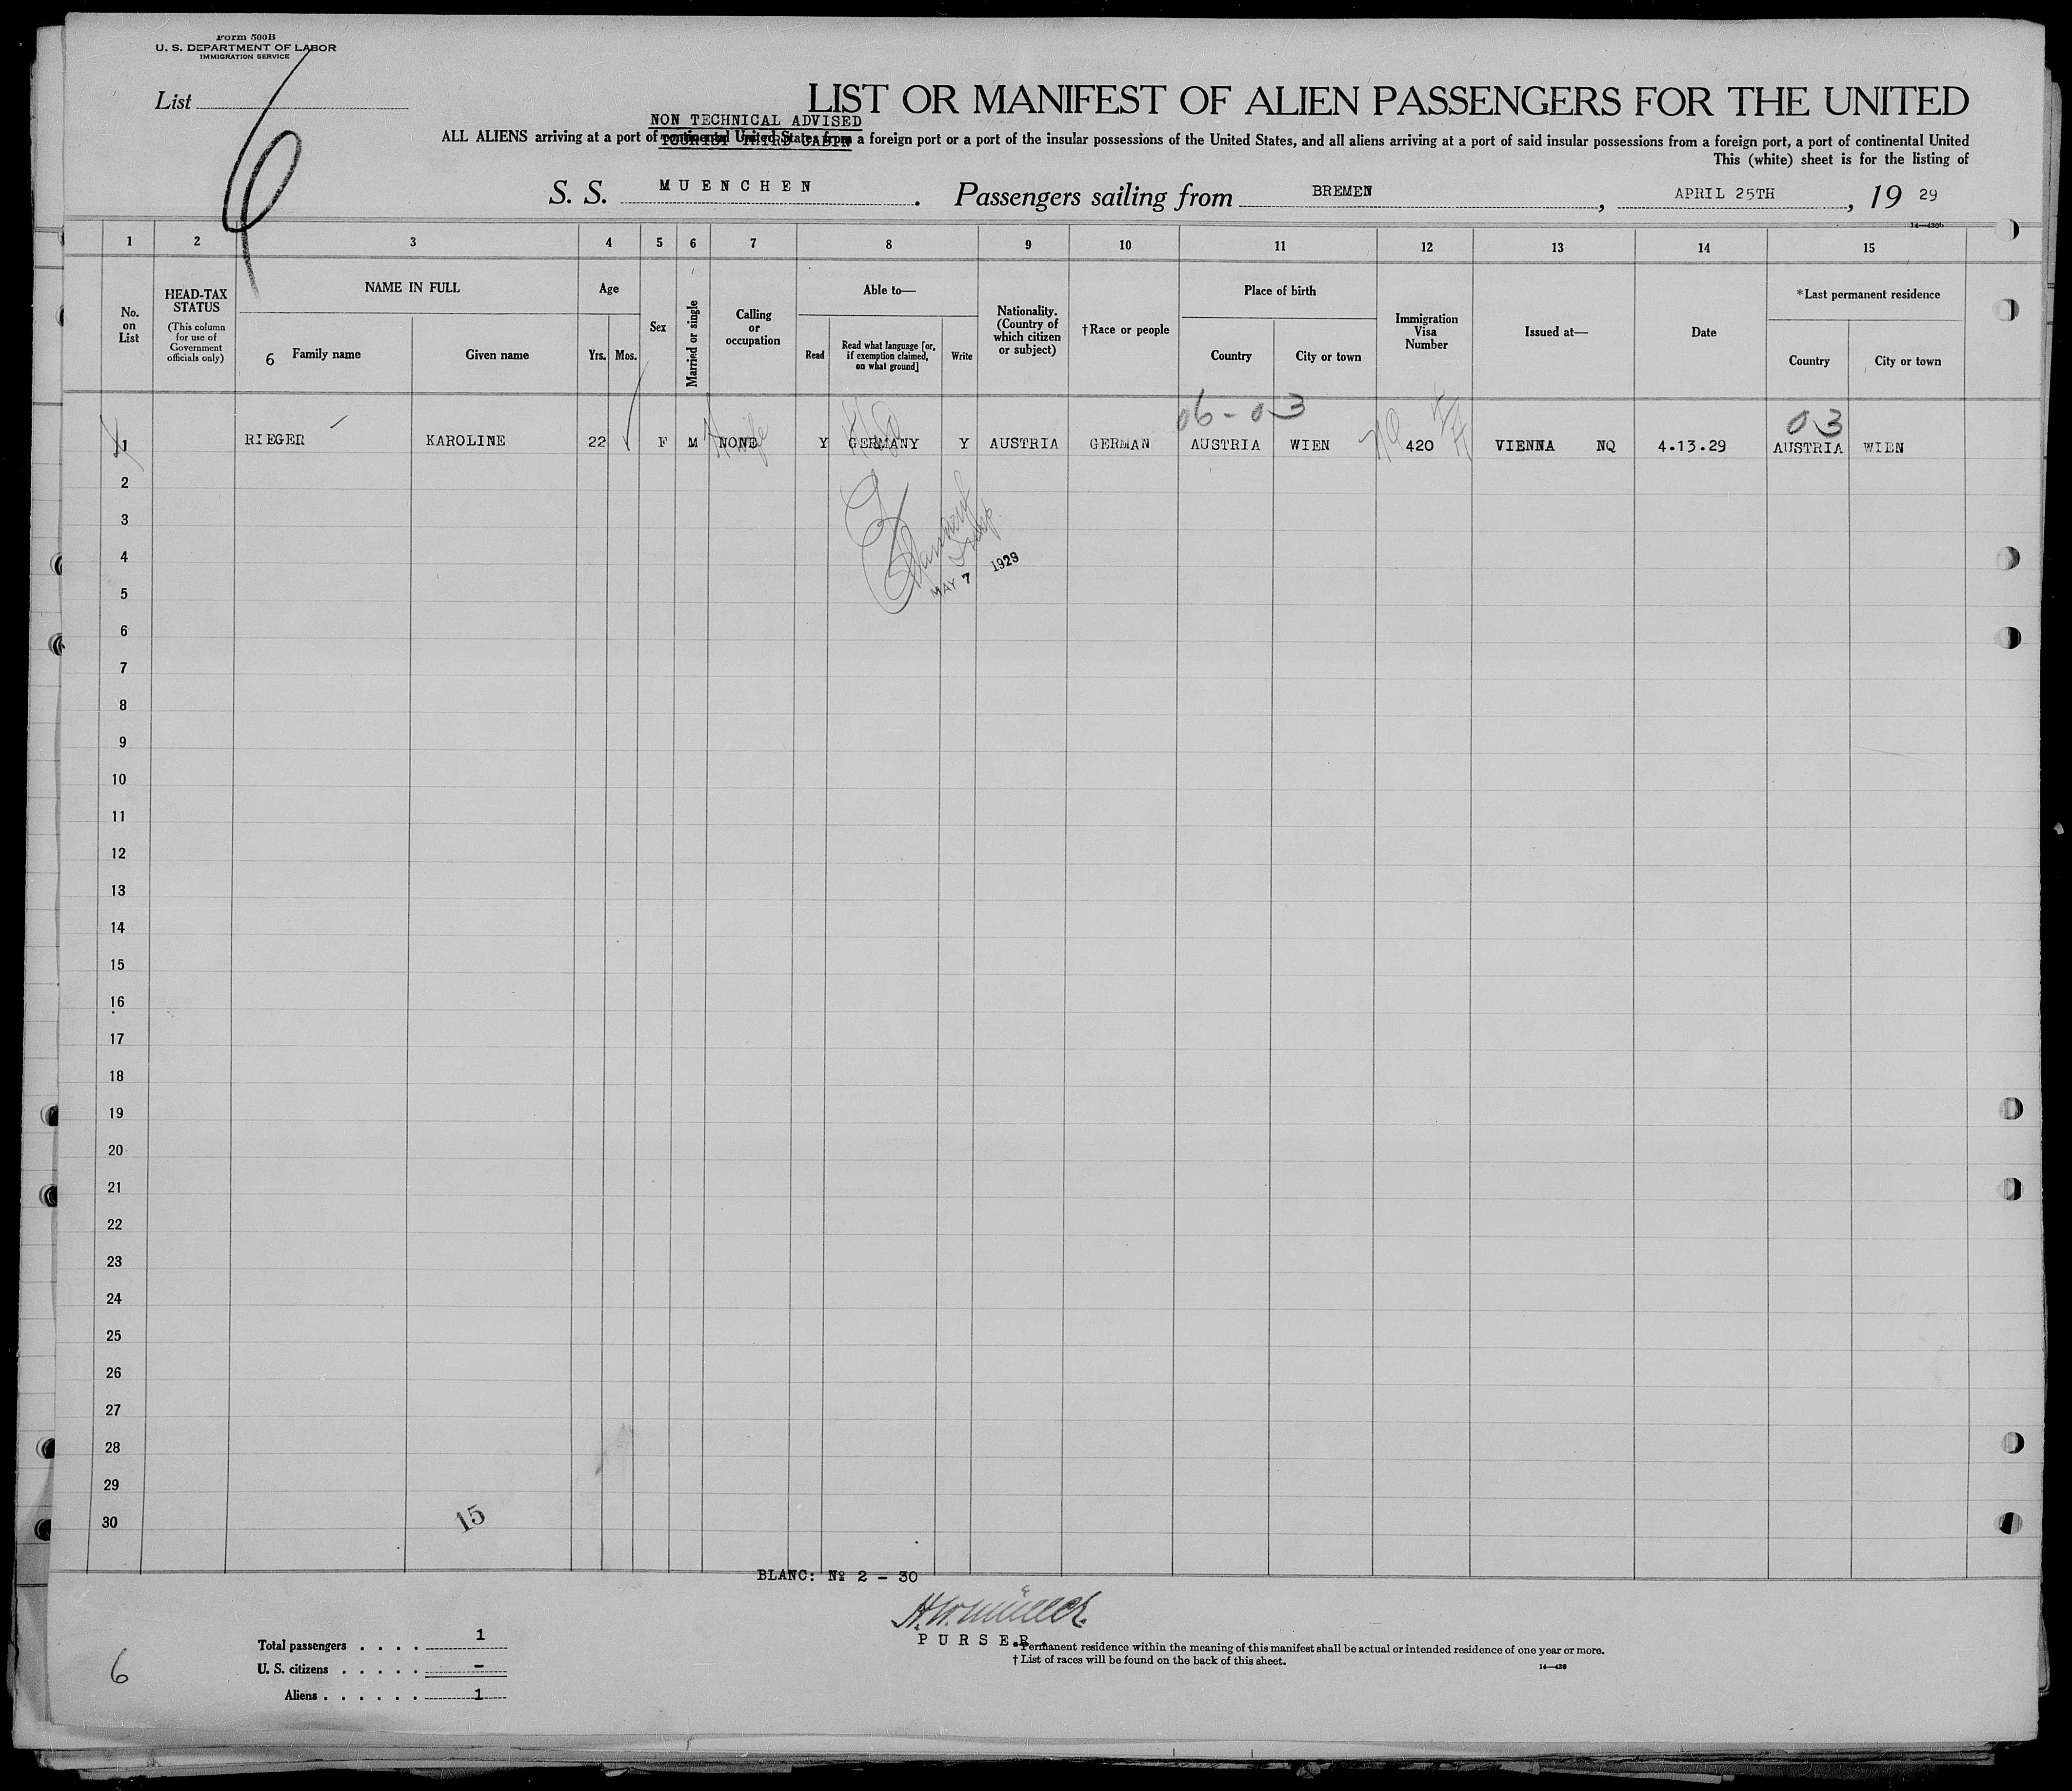 Form 500B
U. S. DEPARTMENT OF LABOR
IMMIGRATION SERVICE
List 6
LIST OR MANIFEST OF ALIEN PASSENGERS FOR THE UNITED
NON TECHNICAL ADVISED
ALL ALIENS arriving at a port of continental United States from a foreign port or a port of the insular possessions of the United States, and all aliens arriving at a port of said insular possessions from a foreign port, a port of continental United
TOURIST THIRD CABIN
This (white) sheet is for the listing of
S. S. MUENCHEN. Passengers sailing from BREMEN, APRIL 25TH, 19 29
14—430b
1 2 3 4 5 6 7 8 9 10 11 12 13 14 15
No. on List
HEAD-TAX STATUS
(This column for use of Government officials only)
NAME IN FULL
6 Family name
Given name
Age
Yrs. Mos.
Sex
Married or single
Calling or occupation
Able to—
Read
Read what language [or, if exemption claimed, on what ground]
Write
Nationality. (Country of which citizen or subject)
†Race or people
Place of birth
Country
City or town
Immigration Visa Number
Issued at—
Date
*Last permanent residence
Country
City or town
06-03 03
1 RIEGER KAROLINE 22 F M NONE Y GERMANY Y AUSTRIA GERMAN AUSTRIA WIEN NQ 420 VIENNA NQ 4.13.29 AUSTRIA WIEN
H wife
2
3
4
MAY 7 1929
5
6
7
8
9
10
11
12
13
14
15
16
17
18
19
20
21
22
23
24
25
26
27
28
29
30
15
BLANC: № 2 – 30
H. W. Müller
PURSER.
Total passengers . . . . 1
U. S. citizens . . . . . –
Aliens . . . . . . 1
6
*Permanent residence within the meaning of this manifest shall be actual or intended residence of one year or more.
†List of races will be found on the back of this sheet.
14—430